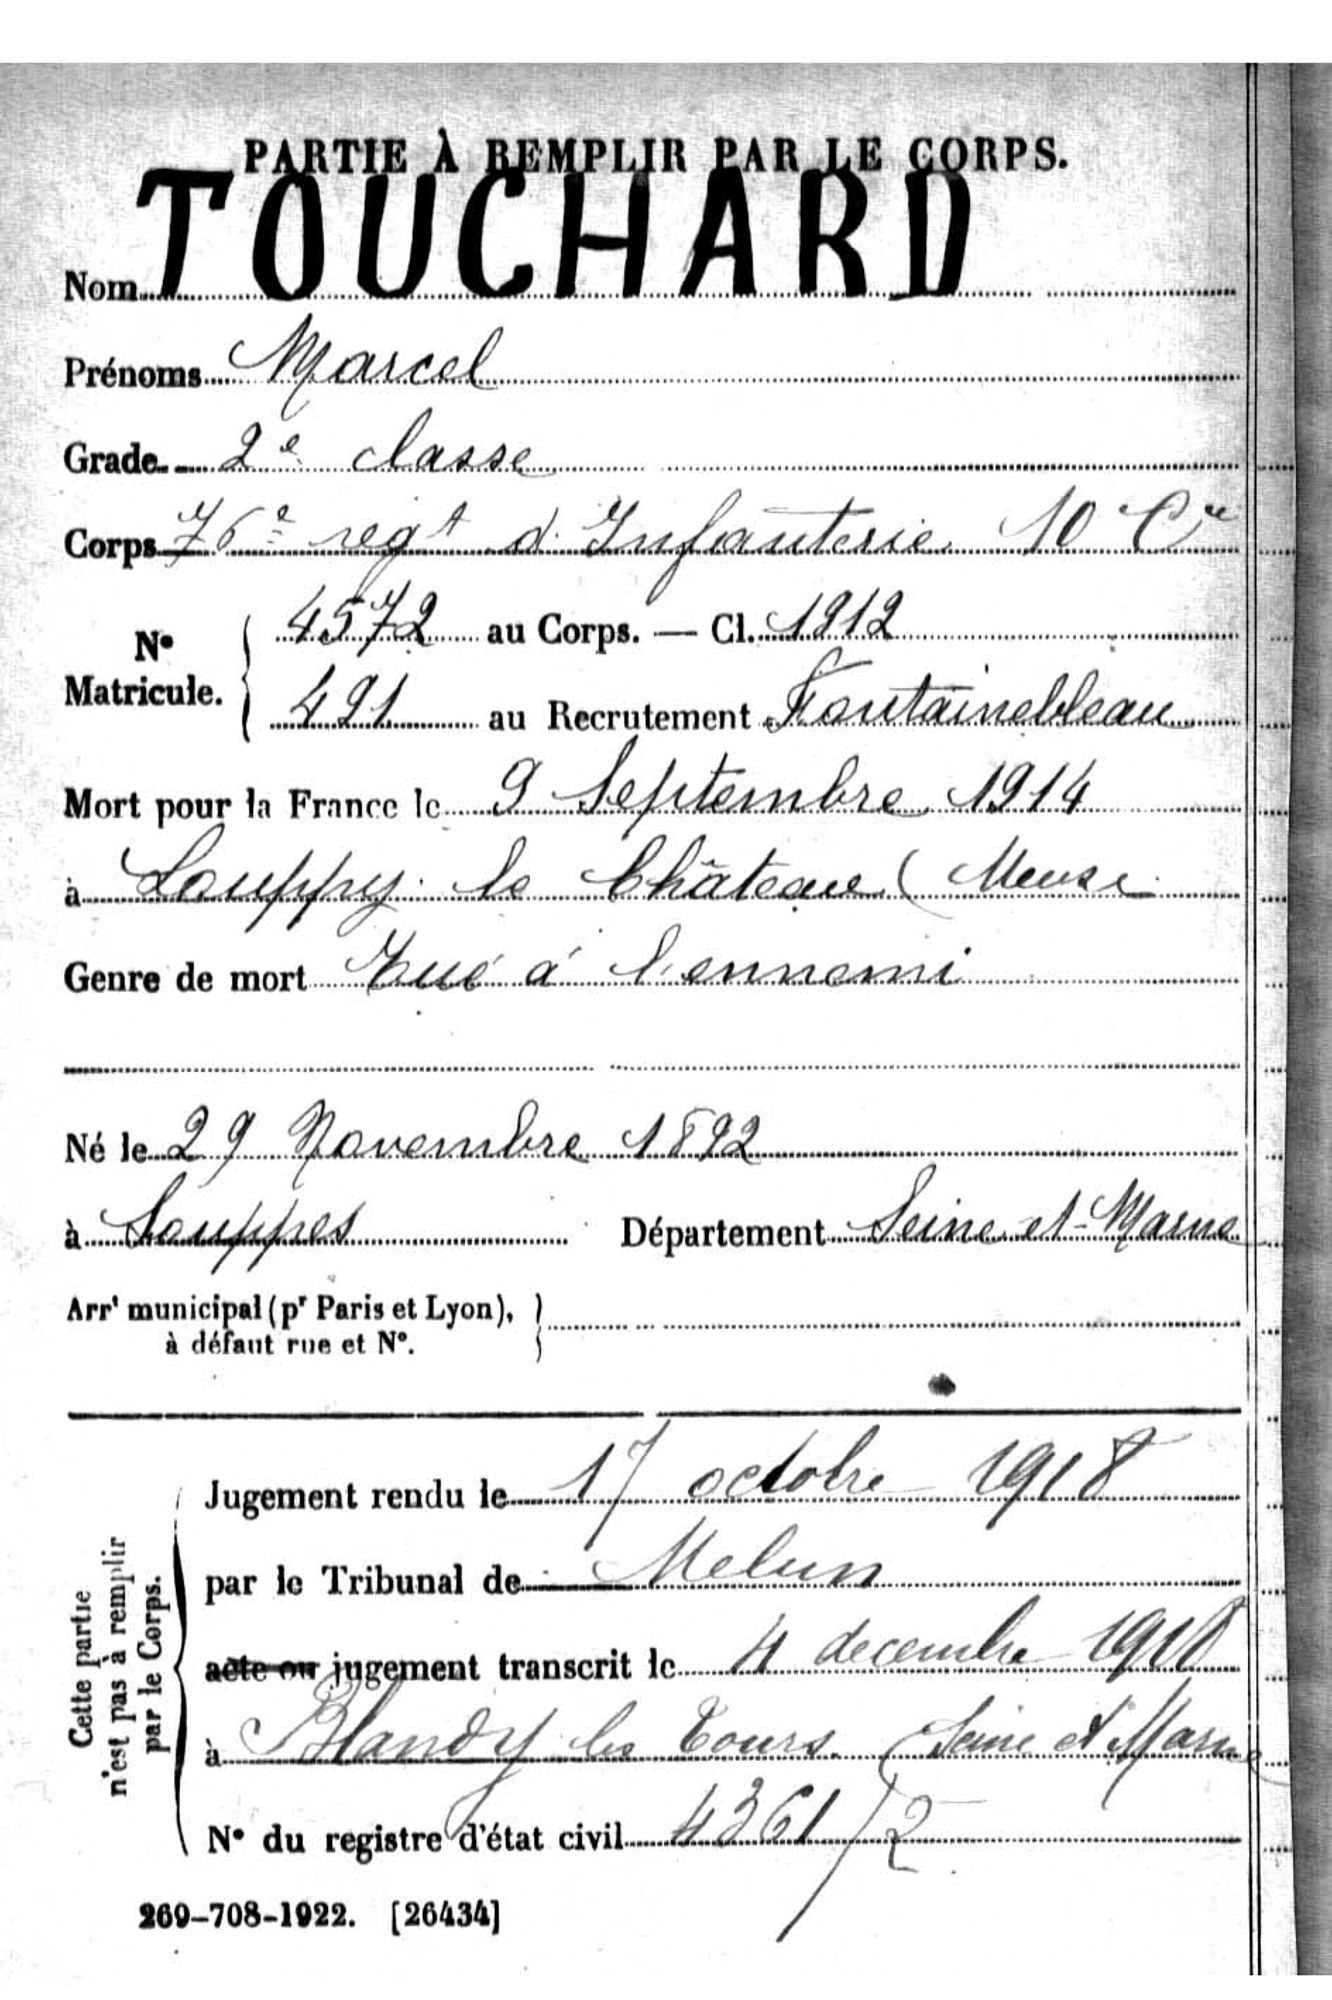 PARTIE À REMPLIR PAR LE CORPS.
Nom TOUCHARD
Prénoms Marcel
Grade 2e classe
Corps 76e regt d'Infanterie 10e Cie
No Matricule. { 4572 au Corps. — Cl. 1912
491 au Recrutement Fontainebleau
Mort pour la France le 9 Septembre 1914
à Louppy le Château (Meuse
Genre de mort Tué à l'ennemi
Né le 29 Novembre 1892
à Souppes Département Seine et-Marne
Arrt municipal (pr Paris et Lyon), }
à défaut rue et No.
Cette partie
n'est pas à remplir
par le Corps.
Jugement rendu le 17 octobre 1918
par le Tribunal de Melun
acte ou jugement transcrit le 4 decembre 1918
à Blandy les Tours (Seine et Marne
No du registre d'état civil 4361/2
269-708-1922. [26434]